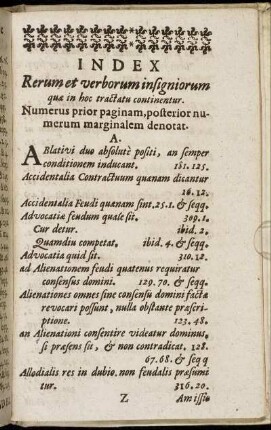 INDEX
Rerum et verborum insigniorum
quæ in hoc tractatu continentur.
Numerus prior paginam, posterior nu-
merum marginalem denotat.
A.
ABlativi duo absolutè positi, an semper
conditionem inducant. 161. 125.
Accidentalia Contractuum quanam dicantur
16. 12.
Accidentalia Feudi quanam sint. 25. 1. & seqq.
Advocatiæ feudum quale sit. 309. 1.
Cur detur. ibid. 2.
Quamdiu competat. ibid. 4. & seqq.
Advocatia quid sit. 310. 12.
ad Alienationem feudi quatenus requiratur
consensus domini. 129. 70. & seqq.
Alienationes omnes sine consensu domini factæ
revocari possunt, nulla obstante præscri-
ptione. 123. 48.
an Alienationi consentire videatur dominus,
si præsens sit, & non contradicat. 128.
67. 68. & seqq
Allodialis res in dubio. non feudalis præsumi
tur. 316. 20.
Z Amissio